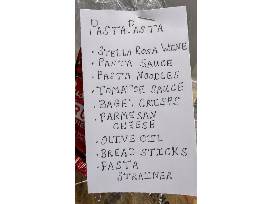 PASTA PASTA
• STELLA ROSA WINE
• PASTA SAUCE
• PASTA NOODLES
• TOMATOE SAUCE
• BAGEL CRISPS
• PARMESAN
CHEESE
• OLIVE OIL
• BREAD STICKS
• PASTA
STRAINER